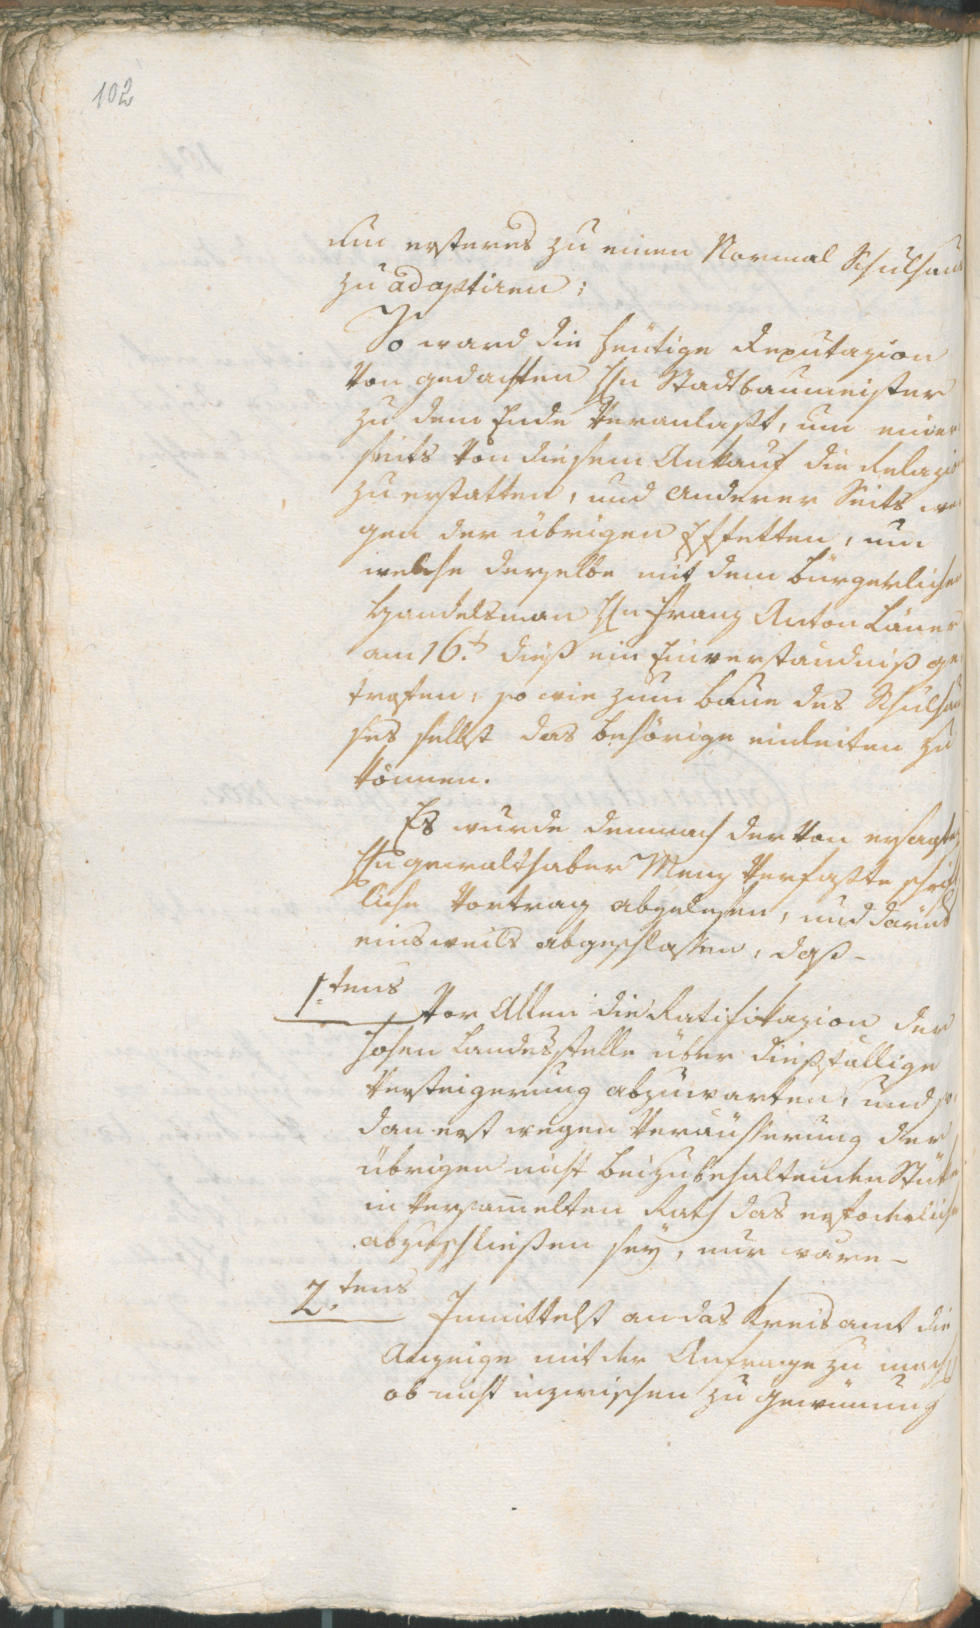 102
um ersteres zu einen Normal Schulhaus
zu adaptiren;
So ward die heutige Deputazion
von gedachten Hn Stadtbaumeister
zu dem Ende veranlaßt, um einer
seits von diesem Ankauf die Relazion
zu erstatten, und anderer Seits we
gen der übrigen Effekten, um
welche derselbe mit dem bürgerlichen
Handelsman Hn Franz Anton Läner
am 16.t dieß ein Einverständniß ge
trofen, so wie zum Baue des Schulhau
ses selbst das behörige einleiten zu
können.
Es wurde demnach der von ersagten
Hn Gewalthaber Menz verfaßte schrift
liche Vortrag abgelesen, und darüb
einsweils abgeschlossen, daß-
1.tens Vor Allem die Ratifikazion der
hohen Landesstelle über dießfällige
Versteigerung abzuwarten, und so
dan erst wegen Veräusserung der
übrigen nicht beizubehaltenden Stüke
in versam̄elten Rath das erforderliche
abzuschließen sey, nur wäre-
2.tens Inmittelst an das Kreisamt die
Anzeige mit der Anfrage zu machen
ob nicht inzwischen zu Gewinnung